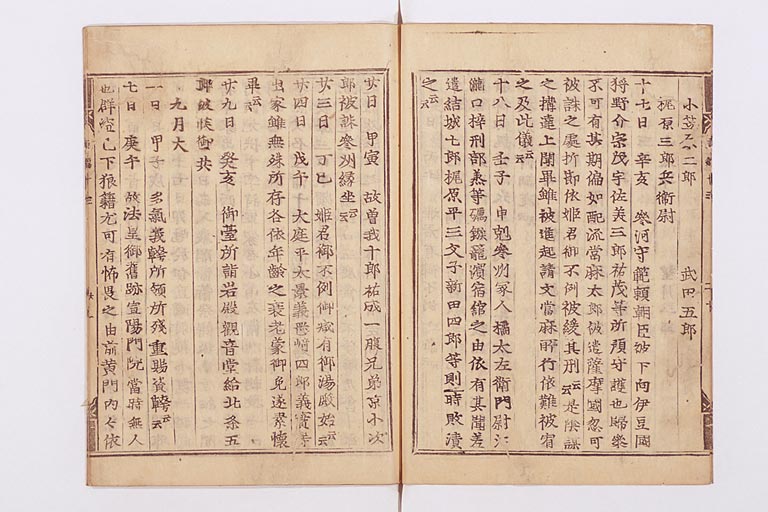 小笠原二郎　武田五郎
梶原三郎兵衞尉
十七日　辛亥　參河守範頼朝臣被下向伊豆國
狩野介宗茂宇佐美三郎祐茂等所預守護也歸參
不可有其期偏如配流當麻太郎被遣薩摩國忽可
被誅之處折節依姫君御不例被緩其刑云云是陰謀
之搆達上聞畢雖被進起請文當麻所行依難被宥
之及此儀云云
十八日　壬子　申剋參州家人橘太左衞門尉江
瀧口梓刑部丞等礪鏃籠濱宿舘之由依有其聞差
遣結城七郎梶原平三父子新田四郎等則時敗潰
之云云
廿日　甲寅　故曽我十郎祐成一腹兄弟京小次
郎被誅參州縁坐云云
廿三日　丁巳　姫君御不例御減有御湯殿始云云
廿四日　戊午　大庭平太景義岡崎四郎義實等
出家雖無殊所存各依年齡之衰老蒙御免遂素懷
畢云云
廿九日　癸亥　御臺所詣岩殿觀音堂給北条五
九月大
一日　甲子　多氣義幹所領所殘重賜資幹云云
七日　庚午　故法皇御舊跡宣陽門院當時無人
也群盗已下狼籍尤可有怖畏之由前黄門内々依